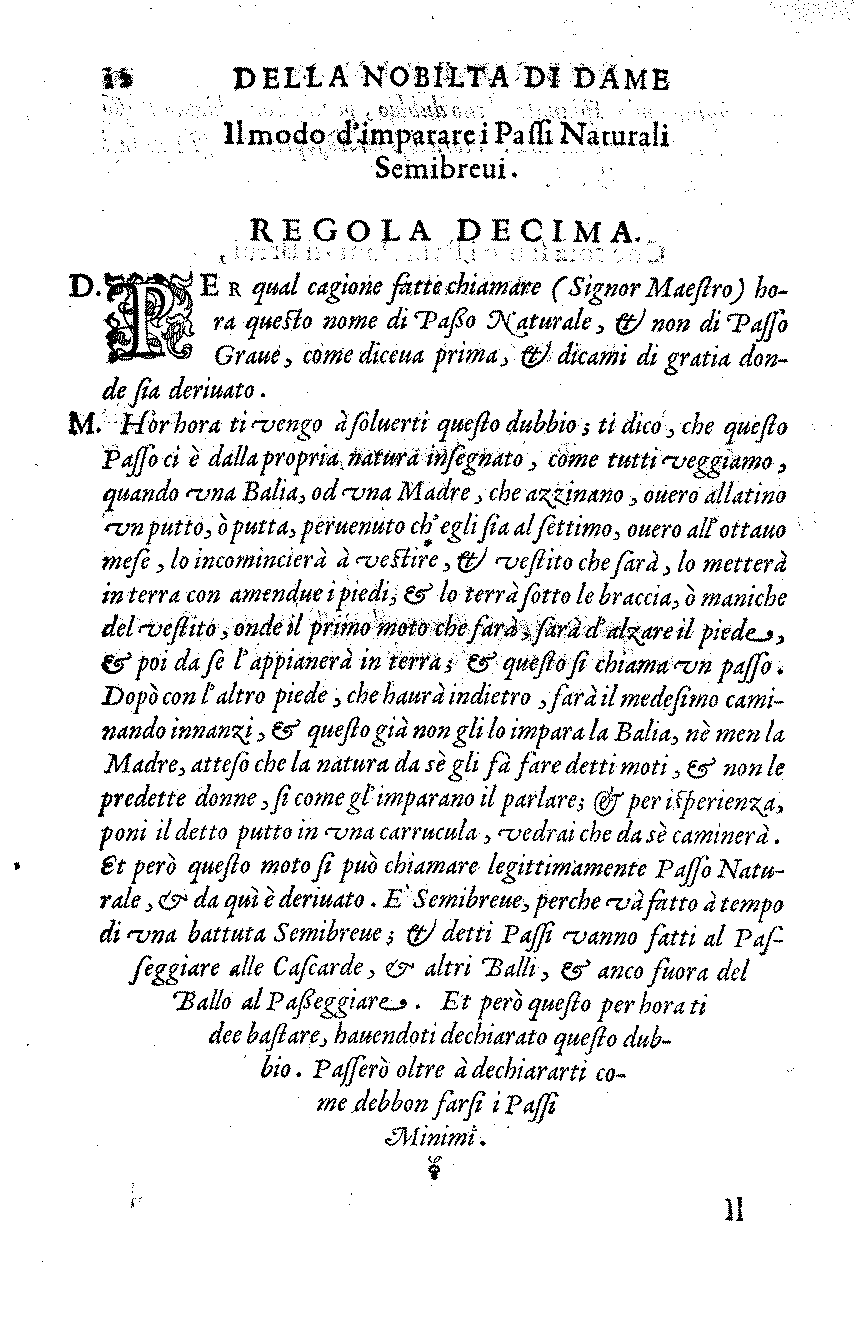 DELLA NOBILTA DI DAME
Il modo d'imparare i Paſſi Naturali
Semibreui.
REGOLA DECIMA.
D. PER qual cagione fatte chiamare (Signor Maeſtro) ho-
ra queſto nome di Paßo Naturale, & non di Paſſo
Graue, come diceua prima, & dicami di gratia don-
de ſia deriuato.
M. Hor hora ti vengo à ſoluerti queſto dubbio; ti dico, che queſto
Paſſo ci è dalla propria natura inſegnato, come tutti veggiamo,
quando vna Balia, od vna Madre, che azzinano, ouero allatino
vn putto, ò putta, peruenuto ch'egli ſia al ſettimo, ouero all'ottauo
meſe, lo incomincierà à veſtire, & veſtito che ſarà, lo metterà
in terra con amendue i piedi; & lo terrà ſotto le braccia, ò maniche
del veſtito, onde il primo moto che farà, ſarà d'alzare il piede,
& poi da ſe l'appianerà in terra; & queſto ſi chiama vn paſſo.
Dopò con l'altro piede, che haurà indietro, farà il medeſimo cami-
nando innanzi, & queſto già non gli lo impara la Balia, nè men la
Madre, atteſo che la natura da sè gli fà fare detti moti, & non le
predette donne, ſi come gl'imparano il parlare; & per iſperienza,
poni il detto putto in vna carrucula, vedrai che da sè caminerà.
Et però queſto moto ſi può chiamare legittimamente Paſſo Natu-
rale, & da quì è deriuato. E' Semibreue, perche và fatto à tempo
di vna battuta Semibreue; & detti Paſſi vanno fatti al Paſ-
ſeggiare alle Caſcarde, & altri Balli, & anco fuora del
Ballo al Paßeggiare. Et però queſto per hora ti
dee baſtare, hauendoti dechiarato queſto dub-
bio. Paſſerò oltre à dechiararti co-
me debbon farſi i Paſſi
Minimi.
Il